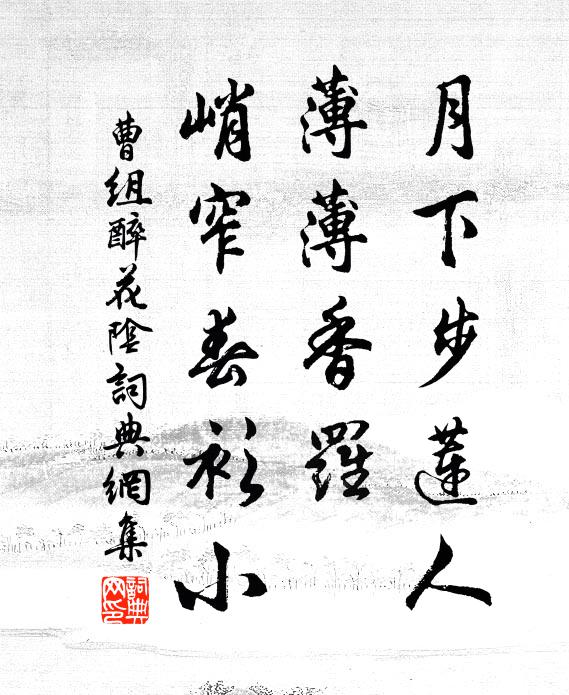 月下步蓮人
薄薄香羅
峭窄春衫小
曹組醉花陰詞典網集
詞典网印